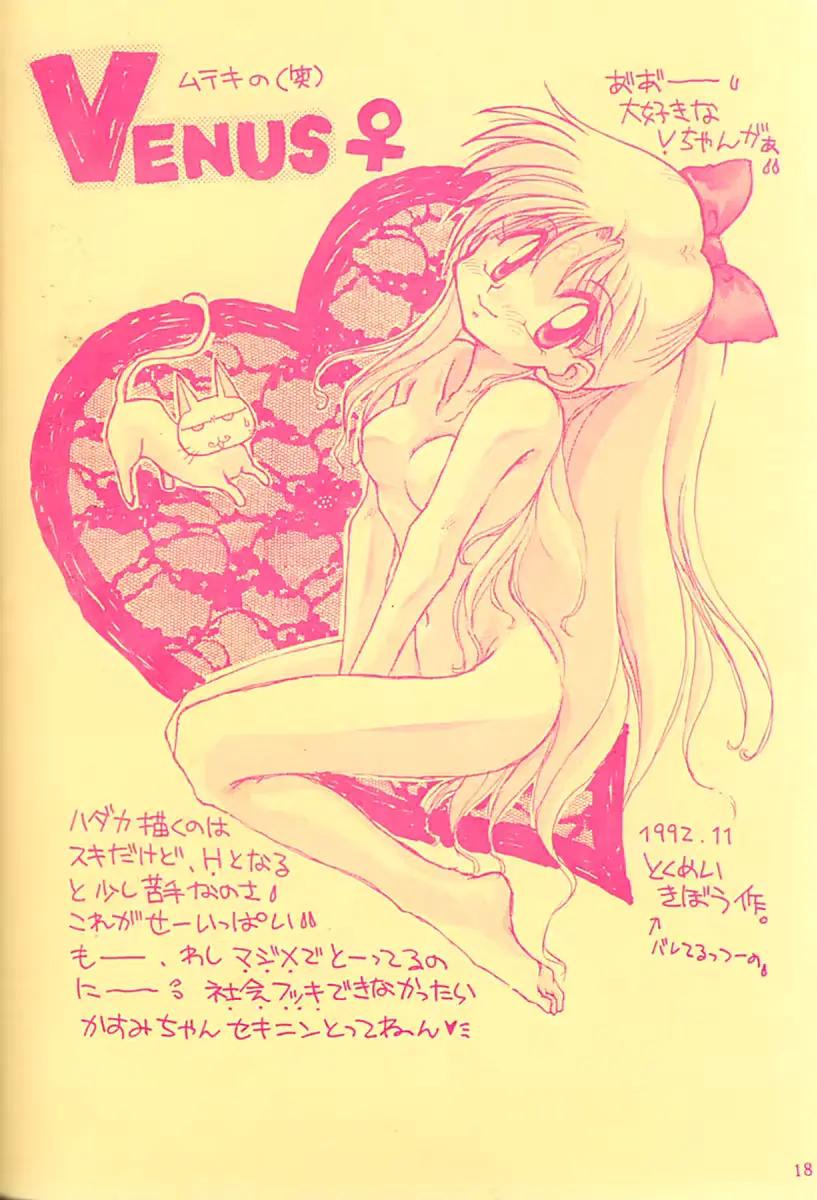 ムテキの(笑)
VENUS♀
あ゛あ゛ーー〃
大好きな
Vちゃんがぁ〃
ハダカ描くのは
スキだけど、Hとなる
と少し苦手なのさ
これがせーいっぱい〃
もーー、わしマジメでとーってるの
にーー。社会フッキできなかったら
かすみちゃんセキニンとってねん♥
1992.11
とくめい
きぼう作。
↑
バレてるっつーの
18